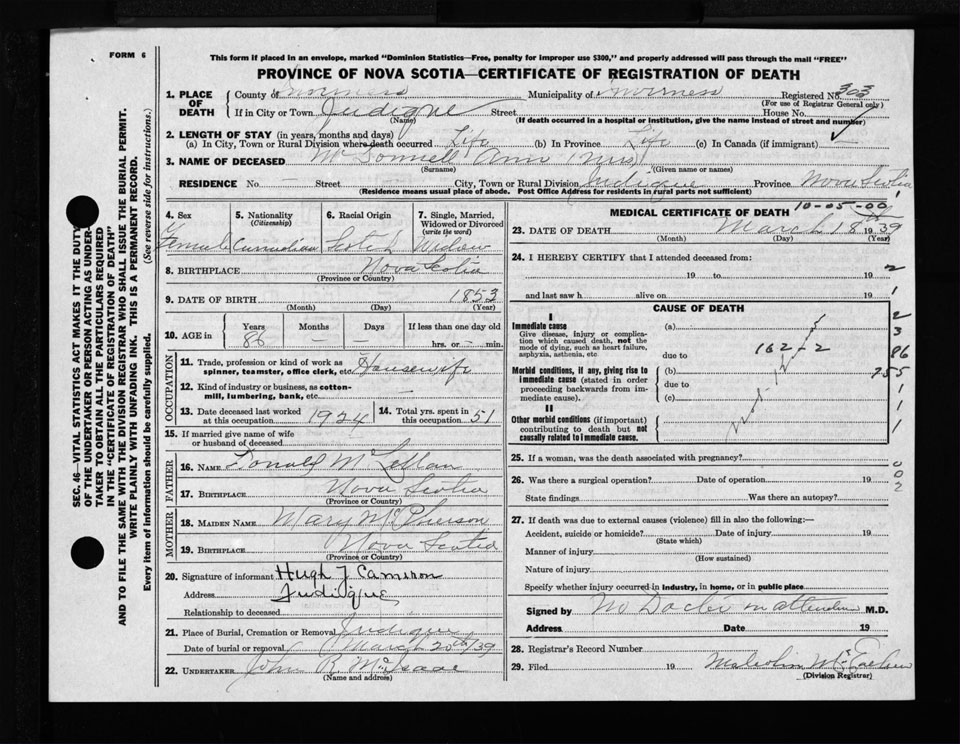 FORM 6
This form if placed in an envelope, marked "Dominion Statistics—Free, penalty for improper use $300," and properly addressed will pass through the mail "FREE"
PROVINCE OF NOVA SCOTIA—CERTIFICATE OF REGISTRATION OF DEATH
1. PLACE OF DEATH
County of Inverness Municipality of Inverness Registered No. 303
(For use of Registrar General only)
If in City or Town Judique Street House No.
(Name) (If death occurred in a hospital or institution, give the name instead of street and number)
2. LENGTH OF STAY (in years, months and days)
(a) In City, Town or Rural Division where death occurred Life (b) In Province Life (c) In Canada (if immigrant) —
3. NAME OF DECEASED Ann (Mrs)
(Surname) (Given name or names)
RESIDENCE No. — Street — City, Town or Rural Division Judique Province Nova Scotia
(Residence means usual place of abode. Post Office Address for residents in rural parts not sufficient)
4. Sex Female
5. Nationality (Citizenship) Canadian
6. Racial Origin Scotch
7. Single, Married, Widowed or Divorced (write the word) Widow
8. BIRTHPLACE Nova Scotia
(Province or Country)
9. DATE OF BIRTH 1853
(Month) (Day) (Year)
10. AGE in Years 86 Months — Days — If less than one day old
hrs. or — min.
OCCUPATION
11. Trade, profession or kind of work as spinner, teamster, office clerk, etc. Housewife
12. Kind of industry or business, as cotton-mill, lumbering, bank, etc. —
13. Date deceased last worked at this occupation 1924
14. Total yrs. spent in this occupation 51
15. If married give name of wife or husband of deceased
FATHER
16. NAME Donald McLellan
17. BIRTHPLACE Nova Scotia
(Province or Country)
MOTHER
18. MAIDEN NAME Mary McPherson
19. BIRTHPLACE Nova Scotia
(Province or Country)
20. Signature of informant Hugh J Cameron
Address Judique
Relationship to deceased
21. Place of Burial, Cremation or Removal Judique
Date of burial or removal March 20th/39
22. UNDERTAKER John R. McIsaac
(Name and address)
MEDICAL CERTIFICATE OF DEATH 10-05-00
23. DATE OF DEATH March 18 1939
(Month) (Day) (Year)
24. I HEREBY CERTIFY that I attended deceased from:
19 to 19
and last saw h alive on 19
CAUSE OF DEATH
I
Immediate cause
Give disease, injury or complication which caused death, not the mode of dying, such as heart failure, asphyxia, asthenia, etc.
(a)
due to 162-2
Morbid conditions, if any, giving rise to immediate cause (stated in order proceeding backwards from immediate cause).
(b)
due to
(c)
II
Other morbid conditions (if important) contributing to death but not causally related to immediate cause.
2
1
2
3
86
755
1
1
1
25. If a woman, was the death associated with pregnancy?
26. Was there a surgical operation? Date of operation 19
State findings Was there an autopsy?
0
0
2
27. If death was due to external causes (violence) fill in also the following:—
Accident, suicide or homicide? Date of injury 19
(State which)
Manner of injury
(How sustained)
Nature of injury
Specify whether injury occurred in industry, in home, or in public place
Signed by No Doctor in attendance M.D.
Address Date 19
28. Registrar's Record Number
29. Filed 19 Malcolm
(Division Registrar)
SEC. 46—VITAL STATISTICS ACT MAKES IT THE DUTY
OF THE UNDERTAKER OR PERSON ACTING AS UNDER-
TAKER TO OBTAIN ALL THE PARTICULARS REQUIRED
IN THE "CERTIFICATE OF REGISTRATION OF DEATH"
AND TO FILE THE SAME WITH THE DIVISION REGISTRAR WHO SHALL ISSUE THE BURIAL PERMIT.
WRITE PLAINLY WITH UNFADING INK. THIS IS A PERMANENT RECORD.
Every item of information should be carefully supplied. (See reverse side for instructions.)